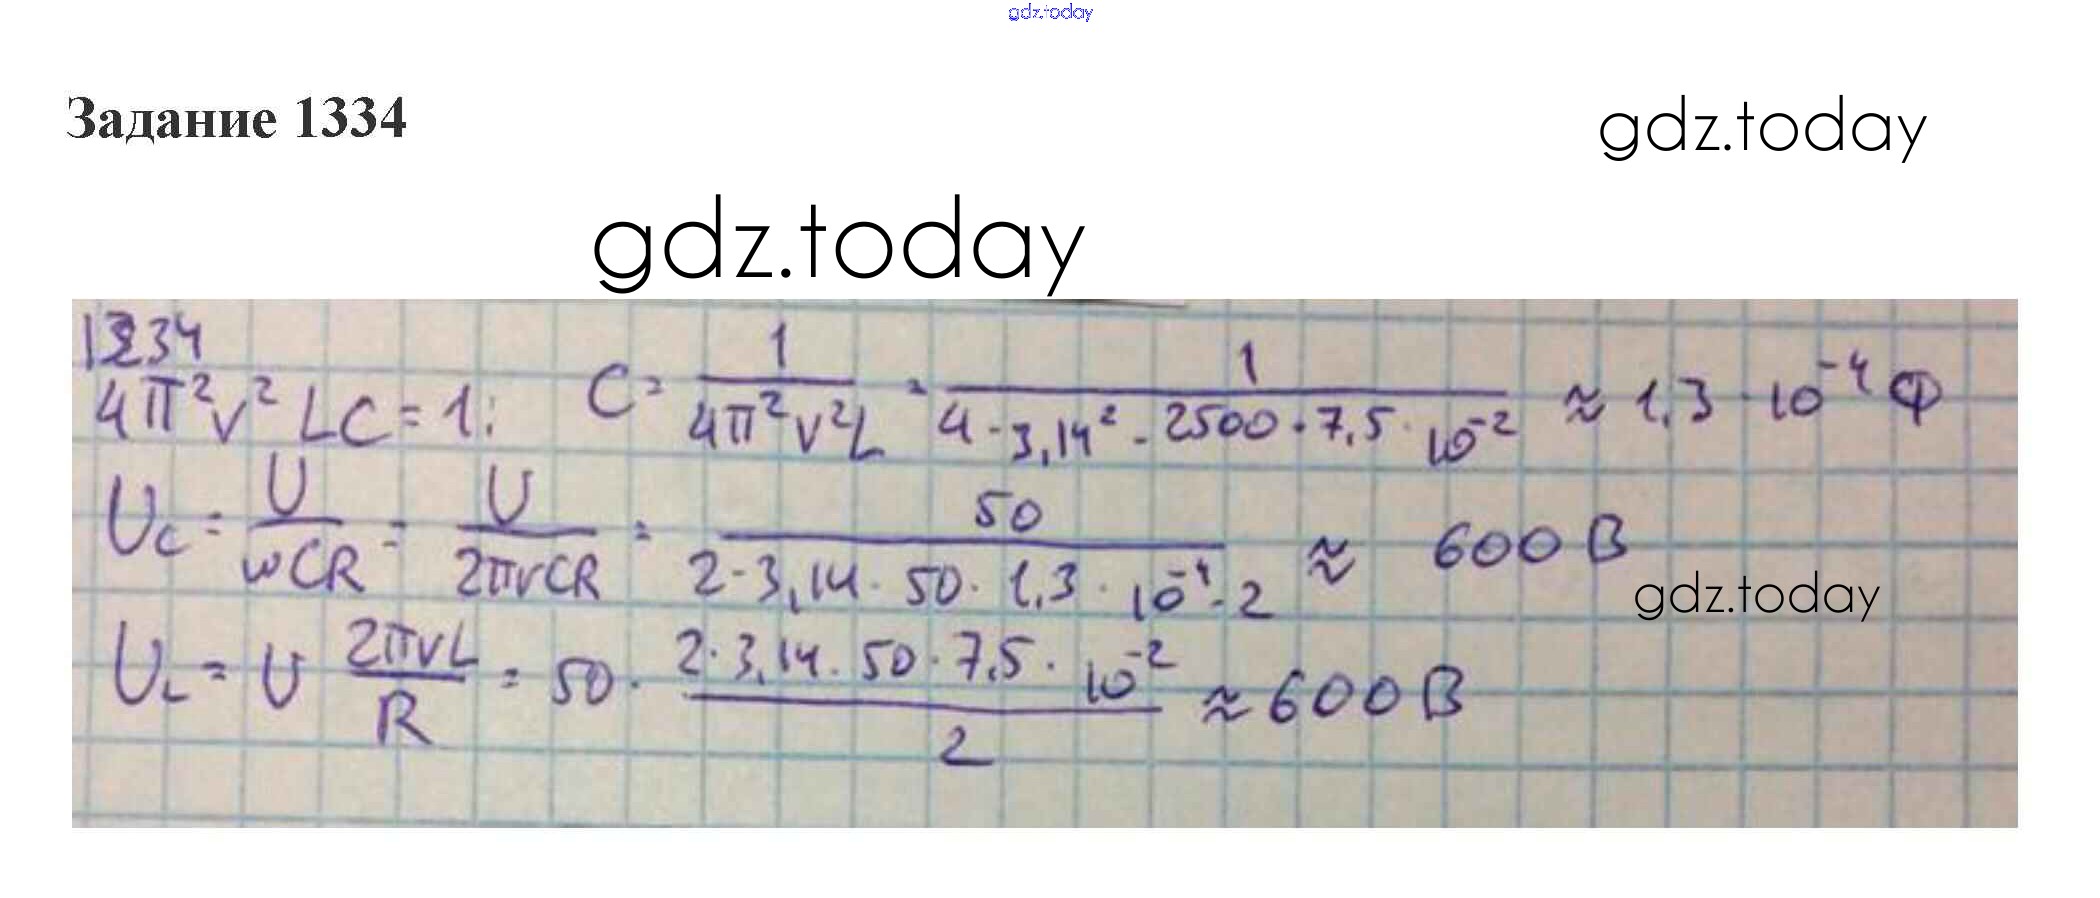 gdz.today
Задание 1334
gdz.today
gdz.today
1334
4π²ν² LC = 1; C = 1 / (4π²ν²L) = 1 / (4 · 3,14² · 2500 · 7,5 · 10⁻²) ≈ 1,3 · 10⁻⁴ Ф
U_C = U / (ωCR) = U / (2πνCR) = 50 / (2 · 3,14 · 50 · 1,3 · 10⁻⁴ · 2) ≈ 600 В
gdz.today
U_L = U 2πνL / R = 50 · (2 · 3,14 · 50 · 7,5 · 10⁻²) / 2 ≈ 600 В